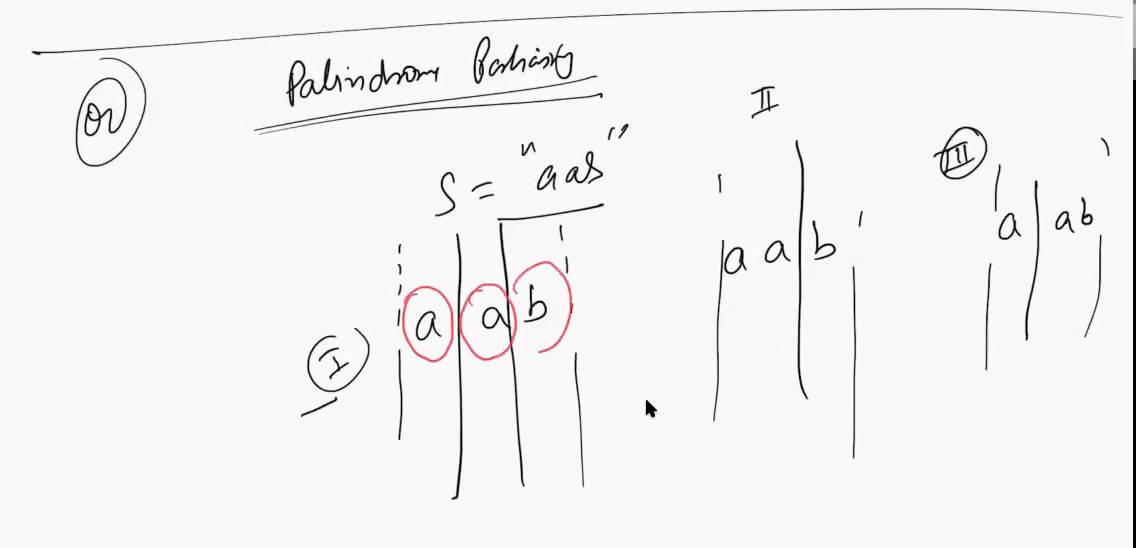 Palindrome Partitioning
S = "aab"
II
III
I
a | a | b
a a | b
a | ab